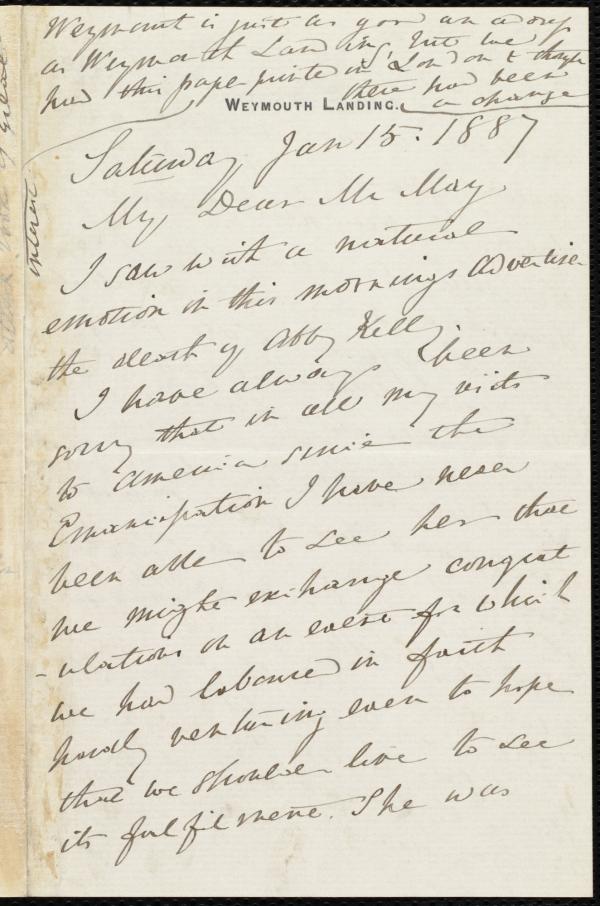 Weymouth is just as good an address
as Weymouth Landing, but we
had this paper printed in London & though
there had been
a change
WEYMOUTH LANDING.
Saturday Jan 15. 1887
My Dear Mr May
I saw with a natural
interest
emotion in this mornings Advertiser
the death of Abby Kelly.
I have always been
sorry that in all my visits
to America since the
Emancipation I have never
been able to see her that
we might exchange congrat
-ulations on an event for which
we had laboured in faith
hardly venturing even to hope
that we should live to see
its fulfilment. She was